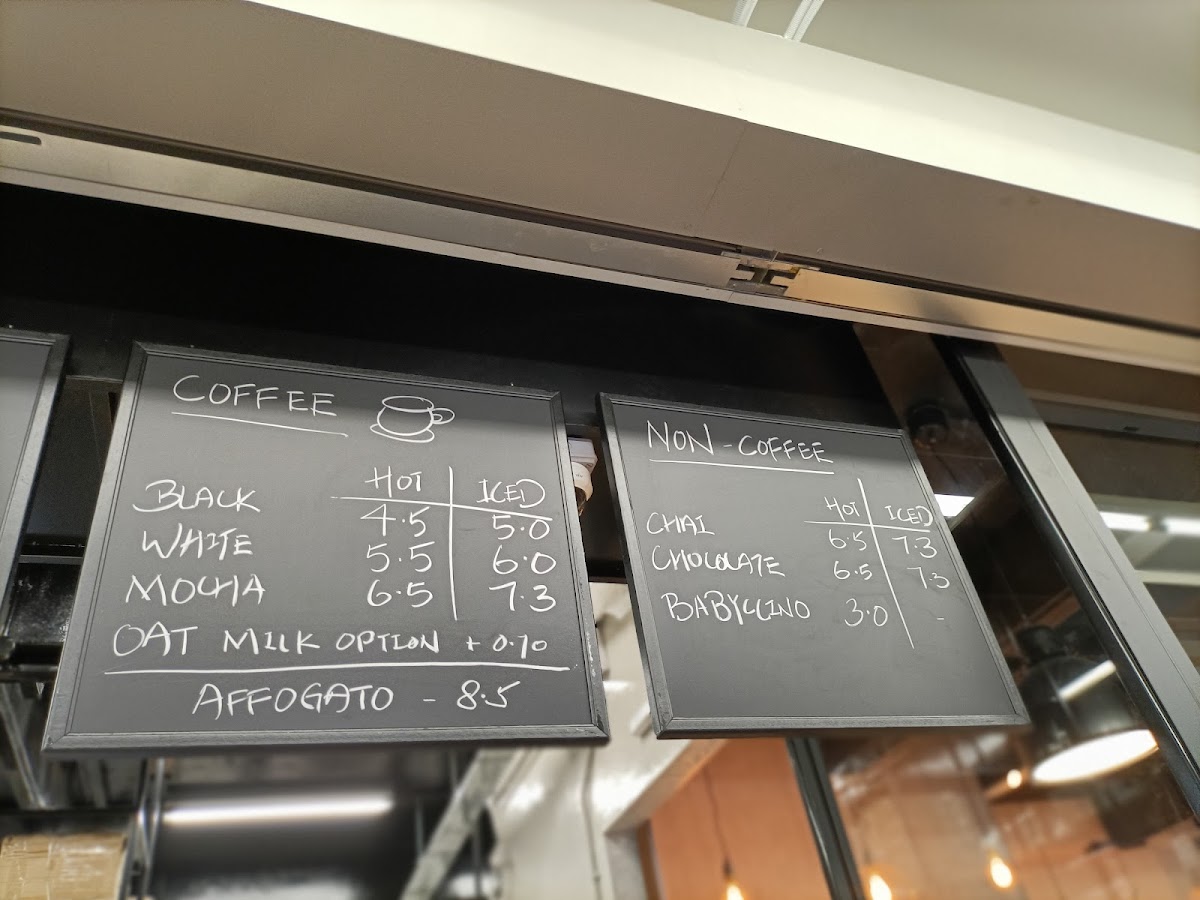 COFFEE
HOT ICED
BLACK 4.5 5.0
WHITE 5.5 6.0
MOCHA 6.5 7.3
OAT MILK OPTION + 0.70
AFFOGATO - 8.5
NON-COFFEE
HOT ICED
CHAI 6.5 7.3
CHOCOLATE 6.5 7.3
BABYCCINO 3.0 -